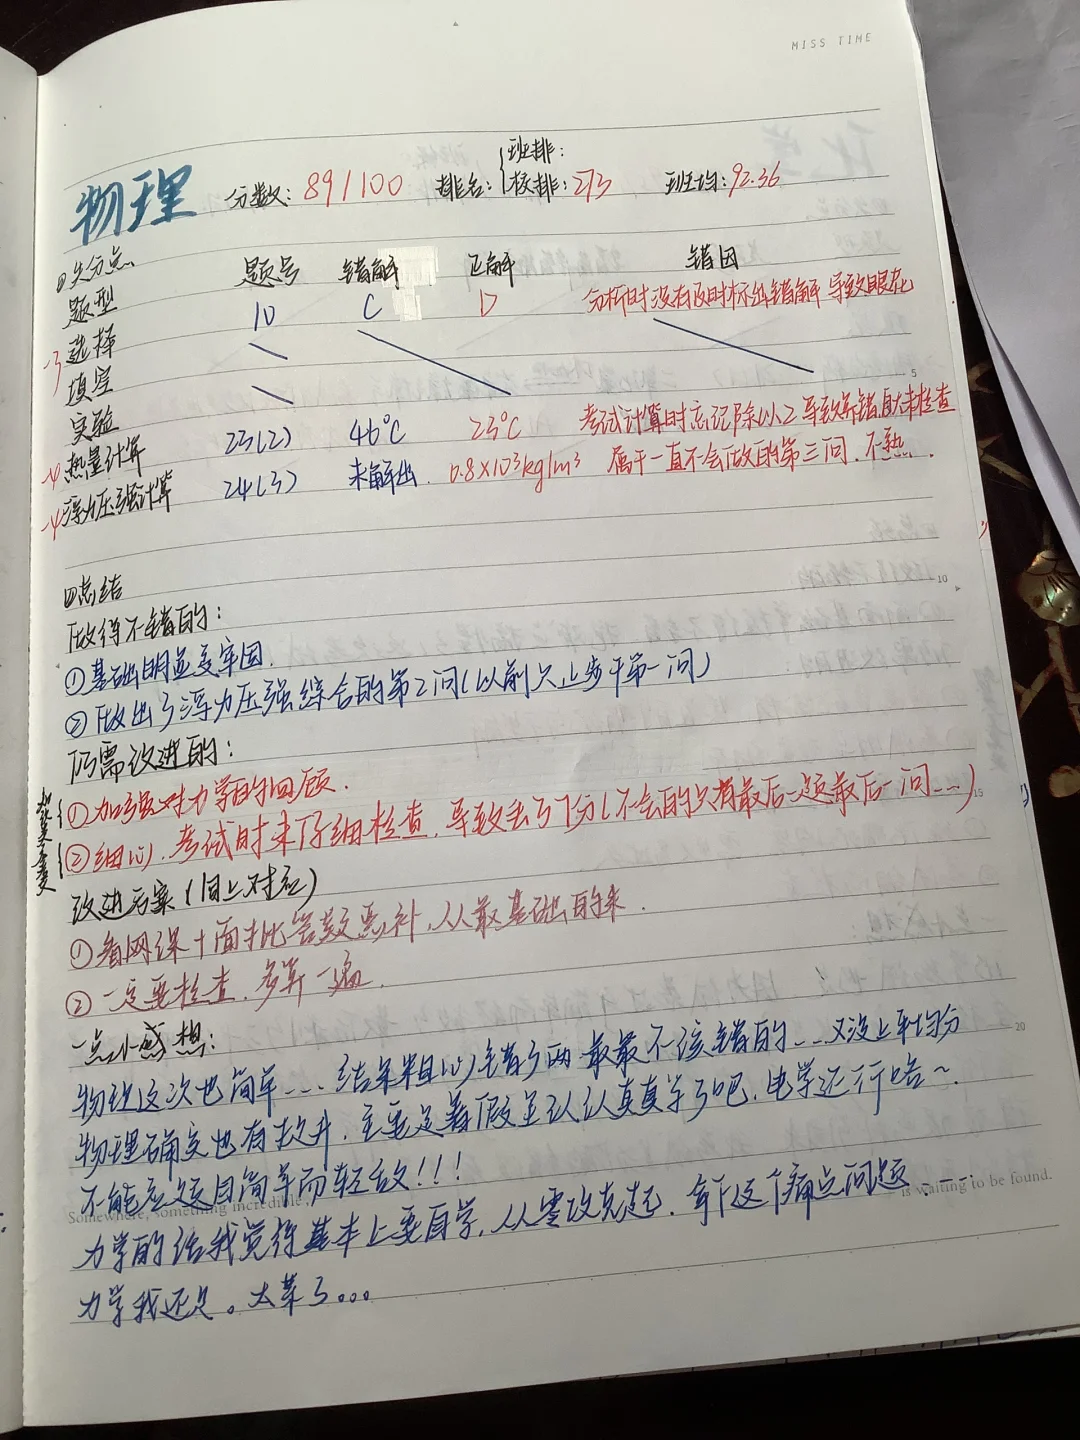 MISS TIME
物理 分数: 89/100 排名: 班排: 校排: 273 班均: 92.36
失分点
题型 题号 错解 正解 错因
选择 10 C D 分析时没有及时标出错解 导致眼花
-3
填空
实验
热量计算 23(2) 46°C 23°C 考试计算时忘记除以2 导致算错且未检查
-4
浮力压强计算 24(3) 未解出 0.8×10³kg/m³ 属于一直不会做的第三问. 不熟
-4
5
10
总结
做得不错的:
①基础明显变牢固.
②做出了浮力压强综合的第2问(以前只止步于第一问)
仍需改进的:
①加强对力学的回顾.
②细心. 考试时未仔细检查. 导致丢了7分(不会的只有最后一题最后一问...)
15
改进方案(同上对应)
①看网课+面批答疑恶补, 从最基础的来.
②一定要检查. 多算一遍.
一点小感想:
20
物理这次也简单... 结果粗心错了两 最最不该错的... 又没上平均分
物理确实也有提升. 主要是暑假是认认真真学了吧. 电学还行唔~.
不能应题目简单而轻敌!!!
Somewhere, something incredible is waiting to be found.
力学的话我觉得基本上要自学. 从零攻克起. 拿下这个痛点问题......
力学我还是。太菜了...